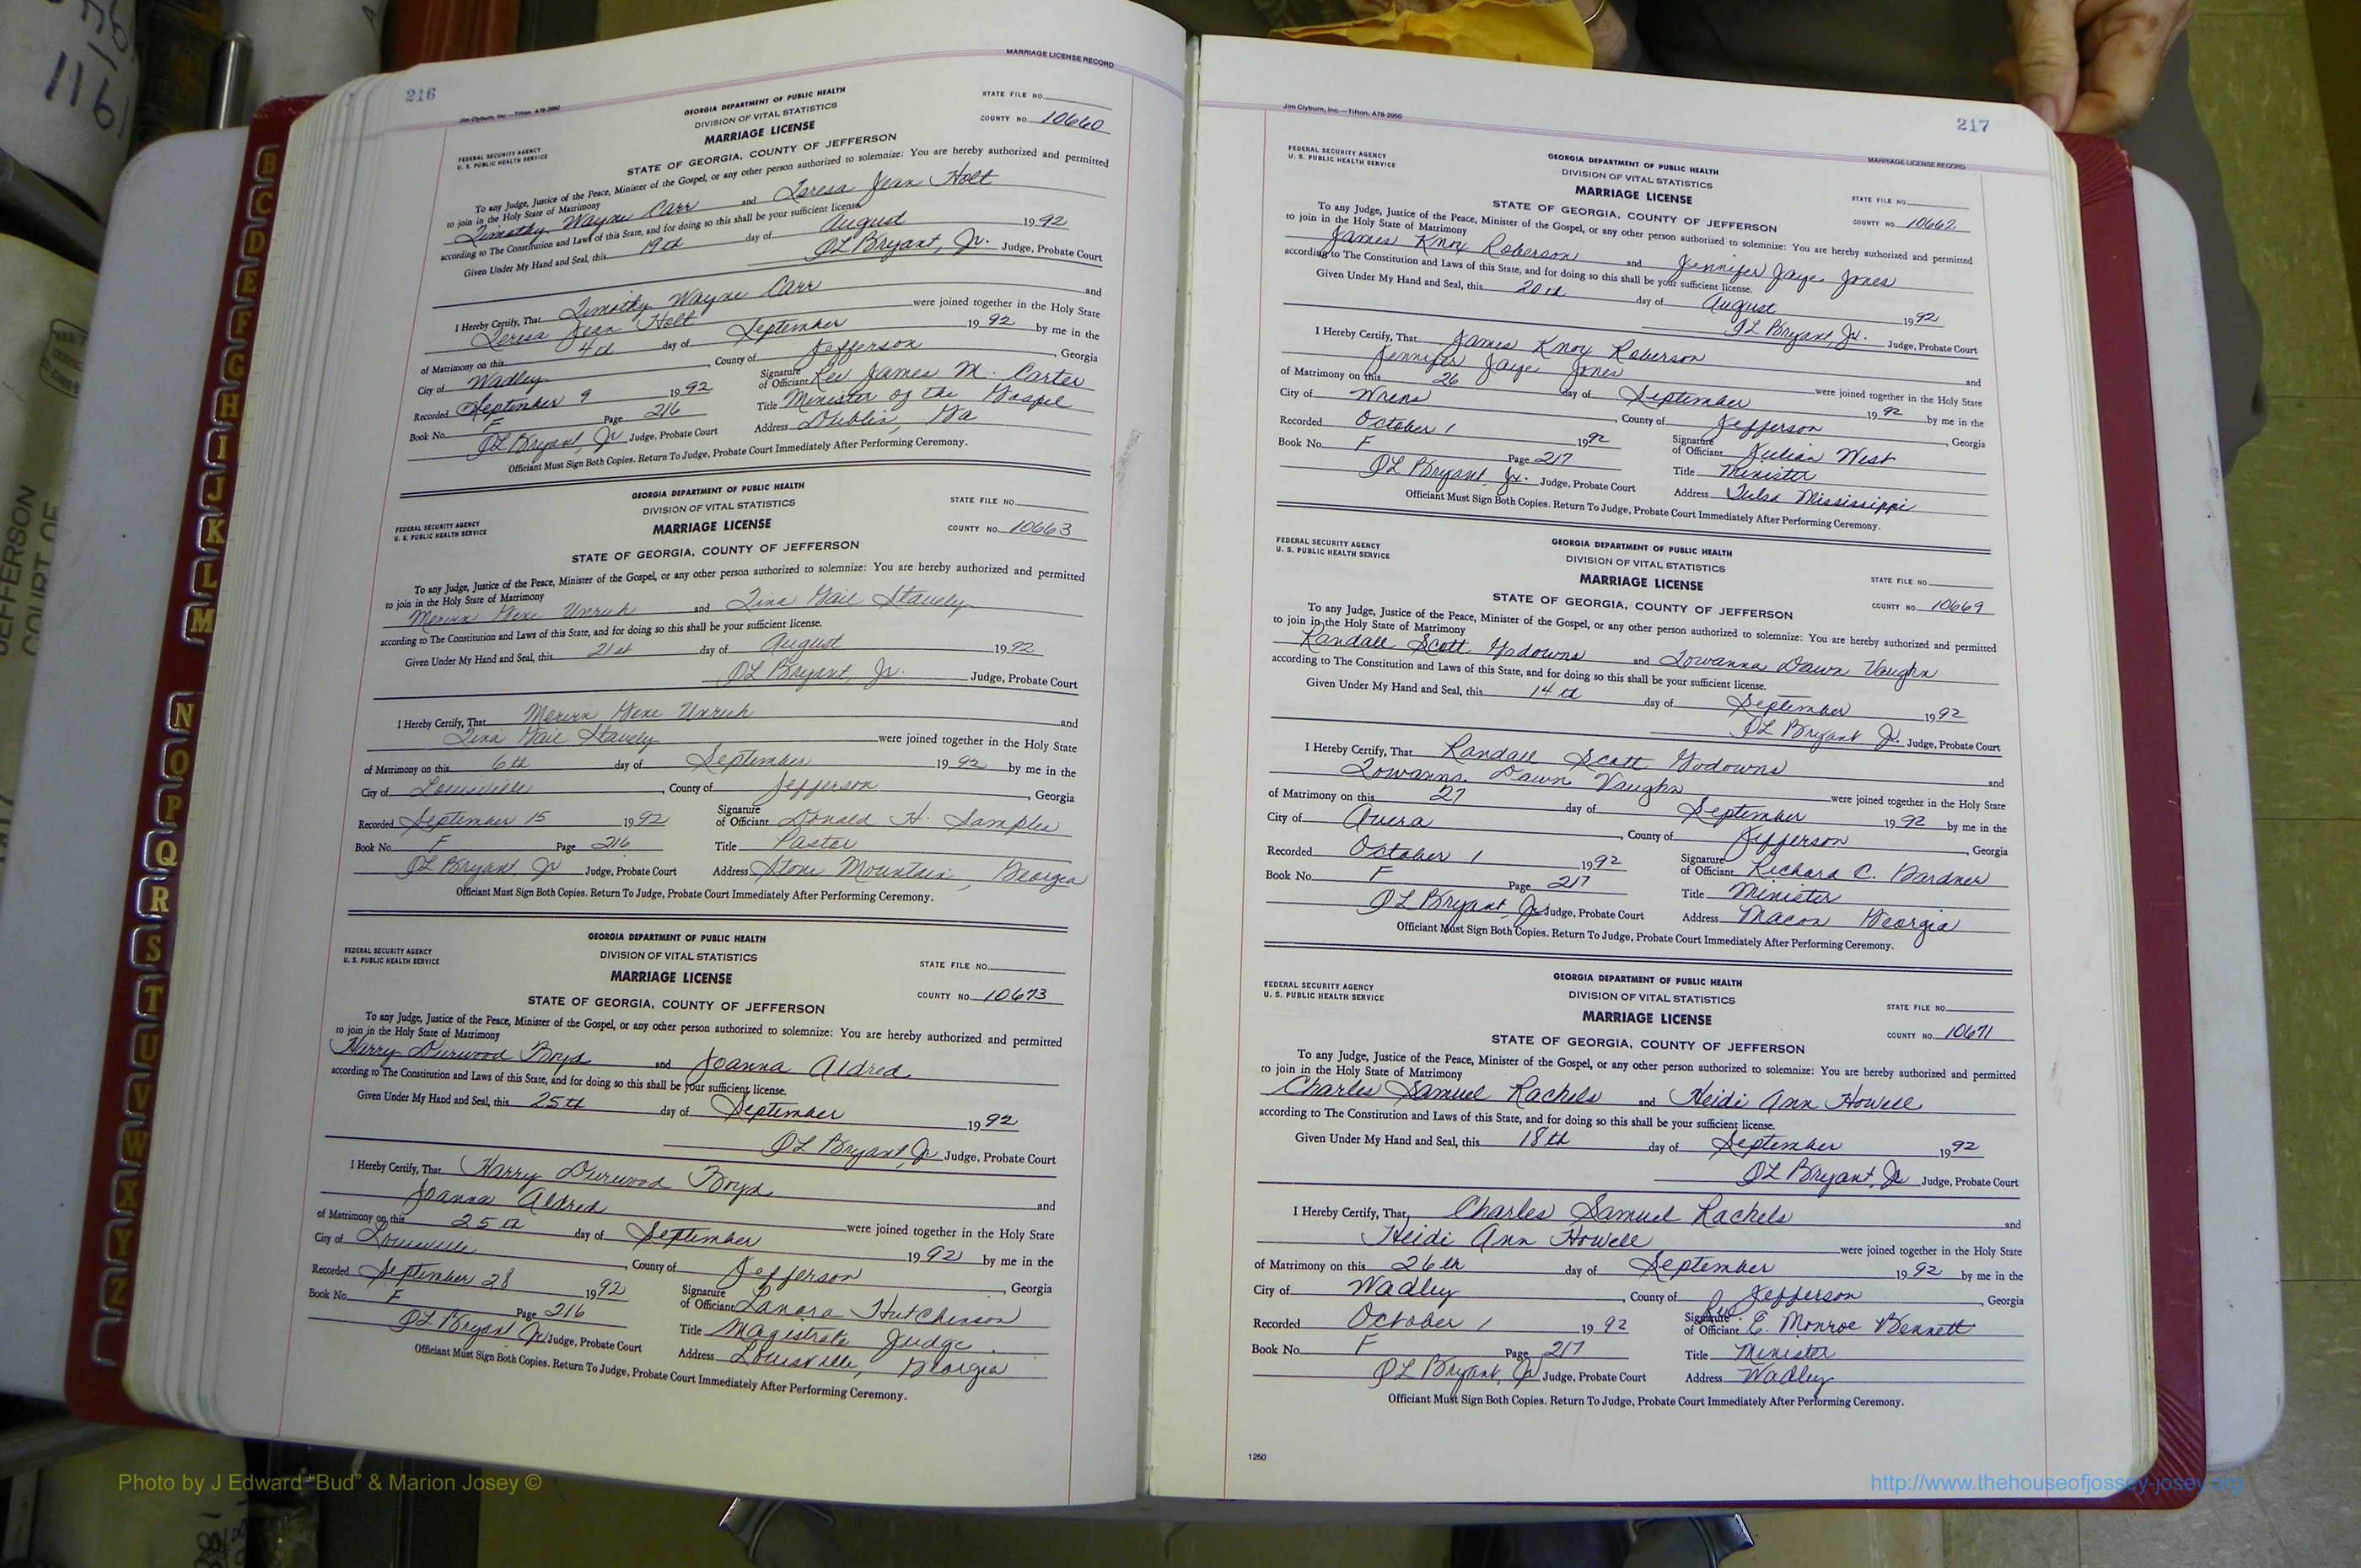 216
MARRIAGE LICENSE RECORD
Jim Clyburn, Inc.—Tifton, A78-2950
GEORGIA DEPARTMENT OF PUBLIC HEALTH
DIVISION OF VITAL STATISTICS
MARRIAGE LICENSE
STATE FILE NO.
COUNTY NO. 10660
FEDERAL SECURITY AGENCY
U. S. PUBLIC HEALTH SERVICE
STATE OF GEORGIA, COUNTY OF JEFFERSON
To any Judge, Justice of the Peace, Minister of the Gospel, or any other person authorized to solemnize: You are hereby authorized and permitted
to join in the Holy State of Matrimony
Timothy Wayne Carr and Teresa Jean Holt
according to The Constitution and Laws of this State, and for doing so this shall be your sufficient license.
Given Under My Hand and Seal, this 19th day of August 1992
QL Bryant, Jr. Judge, Probate Court
I Hereby Certify, That Timothy Wayne Carr and
Teresa Jean Holt were joined together in the Holy State
of Matrimony on this 4th day of September 1992 by me in the
City of Wadley, County of Jefferson, Georgia
Recorded September 9 1992 Signature of Officiant Rev James M. Carter
Book No. F Page 216 Title Minister of the Gospel
QL Bryant, Jr Judge, Probate Court Address Dublin, Ga
Officiant Must Sign Both Copies. Return To Judge, Probate Court Immediately After Performing Ceremony.
GEORGIA DEPARTMENT OF PUBLIC HEALTH
DIVISION OF VITAL STATISTICS
MARRIAGE LICENSE
STATE FILE NO.
COUNTY NO. 10663
FEDERAL SECURITY AGENCY
U. S. PUBLIC HEALTH SERVICE
STATE OF GEORGIA, COUNTY OF JEFFERSON
To any Judge, Justice of the Peace, Minister of the Gospel, or any other person authorized to solemnize: You are hereby authorized and permitted
to join in the Holy State of Matrimony
Gene Unruh and Tina Gail Stavely
according to The Constitution and Laws of this State, and for doing so this shall be your sufficient license.
Given Under My Hand and Seal, this 21st day of August 1992
QL Bryant, Jr. Judge, Probate Court
I Hereby Certify, That Gene Unruh and
Tina Gail Stavely were joined together in the Holy State
of Matrimony on this 6th day of September 1992 by me in the
City of Louisville, County of Jefferson, Georgia
Recorded September 15 1992 Signature of Officiant Donald H. Samples
Book No. F Page 216 Title Pastor
QL Bryant Jr Judge, Probate Court Address Stone Mountain, Georgia
Officiant Must Sign Both Copies. Return To Judge, Probate Court Immediately After Performing Ceremony.
GEORGIA DEPARTMENT OF PUBLIC HEALTH
DIVISION OF VITAL STATISTICS
MARRIAGE LICENSE
STATE FILE NO.
COUNTY NO. 10673
FEDERAL SECURITY AGENCY
U. S. PUBLIC HEALTH SERVICE
STATE OF GEORGIA, COUNTY OF JEFFERSON
To any Judge, Justice of the Peace, Minister of the Gospel, or any other person authorized to solemnize: You are hereby authorized and permitted
to join in the Holy State of Matrimony
Harry Durwood Boyd and Joanna Aldred
according to The Constitution and Laws of this State, and for doing so this shall be your sufficient license.
Given Under My Hand and Seal, this 25th day of September 1992
QL Bryant, Jr Judge, Probate Court
I Hereby Certify, That Harry Durwood Boyd and
Joanna Aldred were joined together in the Holy State
of Matrimony on this 25th day of September 1992 by me in the
City of Louisville, County of Jefferson, Georgia
Recorded September 28 1992 Signature of Officiant Lanora Hutchinson
Book No. F Page 216 Title Magistrate Judge
QL Bryant Jr Judge, Probate Court Address Louisville, Georgia
Officiant Must Sign Both Copies. Return To Judge, Probate Court Immediately After Performing Ceremony.
217
MARRIAGE LICENSE RECORD
Jim Clyburn, Inc.—Tifton, A78-2950
GEORGIA DEPARTMENT OF PUBLIC HEALTH
DIVISION OF VITAL STATISTICS
MARRIAGE LICENSE
STATE FILE NO.
COUNTY NO. 10662
FEDERAL SECURITY AGENCY
U. S. PUBLIC HEALTH SERVICE
STATE OF GEORGIA, COUNTY OF JEFFERSON
To any Judge, Justice of the Peace, Minister of the Gospel, or any other person authorized to solemnize: You are hereby authorized and permitted
to join in the Holy State of Matrimony
James Knox Roberson and Jennifer Jaye Jones
according to The Constitution and Laws of this State, and for doing so this shall be your sufficient license.
Given Under My Hand and Seal, this 20th day of August 1992
QL Bryant, Jr. Judge, Probate Court
I Hereby Certify, That James Knox Roberson and
Jennifer Jaye Jones were joined together in the Holy State
of Matrimony on this 26 day of September 1992 by me in the
City of Wrens, County of Jefferson, Georgia
Recorded October 1 1992 Signature of Officiant Julian West
Book No. F Page 217 Title Minister
QL Bryant, Jr. Judge, Probate Court Address Tulsa Mississippi
Officiant Must Sign Both Copies. Return To Judge, Probate Court Immediately After Performing Ceremony.
GEORGIA DEPARTMENT OF PUBLIC HEALTH
DIVISION OF VITAL STATISTICS
MARRIAGE LICENSE
STATE FILE NO.
COUNTY NO. 10669
FEDERAL SECURITY AGENCY
U. S. PUBLIC HEALTH SERVICE
STATE OF GEORGIA, COUNTY OF JEFFERSON
To any Judge, Justice of the Peace, Minister of the Gospel, or any other person authorized to solemnize: You are hereby authorized and permitted
to join in the Holy State of Matrimony
Randall Scott Godowns and Lowanna Dawn Vaughn
according to The Constitution and Laws of this State, and for doing so this shall be your sufficient license.
Given Under My Hand and Seal, this 14th day of September 1992
QL Bryant Jr. Judge, Probate Court
I Hereby Certify, That Randall Scott Godowns and
Lowanna Dawn Vaughn were joined together in the Holy State
of Matrimony on this 27 day of September 1992 by me in the
City of Avera, County of Jefferson, Georgia
Recorded October 1 1992 Signature of Officiant Richard C. Gardner
Book No. F Page 217 Title Minister
QL Bryant, Jr Judge, Probate Court Address Macon Georgia
Officiant Must Sign Both Copies. Return To Judge, Probate Court Immediately After Performing Ceremony.
GEORGIA DEPARTMENT OF PUBLIC HEALTH
DIVISION OF VITAL STATISTICS
MARRIAGE LICENSE
STATE FILE NO.
COUNTY NO. 10671
FEDERAL SECURITY AGENCY
U. S. PUBLIC HEALTH SERVICE
STATE OF GEORGIA, COUNTY OF JEFFERSON
To any Judge, Justice of the Peace, Minister of the Gospel, or any other person authorized to solemnize: You are hereby authorized and permitted
to join in the Holy State of Matrimony
Charles Samuel Rachels and Heidi Ann Howell
according to The Constitution and Laws of this State, and for doing so this shall be your sufficient license.
Given Under My Hand and Seal, this 18th day of September 1992
QL Bryant, Jr Judge, Probate Court
I Hereby Certify, That Charles Samuel Rachels and
Heidi Ann Howell were joined together in the Holy State
of Matrimony on this 26th day of September 1992 by me in the
City of Wadley, County of Jefferson, Georgia
Recorded October 1 1992 Signature of Officiant Rev. E. Monroe Bennett
Book No. F Page 217 Title Minister
QL Bryant, Jr Judge, Probate Court Address Wadley
Officiant Must Sign Both Copies. Return To Judge, Probate Court Immediately After Performing Ceremony.
1250
B
C
D
E
F
G
H
I
J
K
L
M
N
O
P
Q
R
S
T
U
V
W
X
Y
Z
JEFFERSON
COURT OF
Photo by J Edward "Bud" & Marion Josey ©
http://www.thehouseofjossey-josey.org